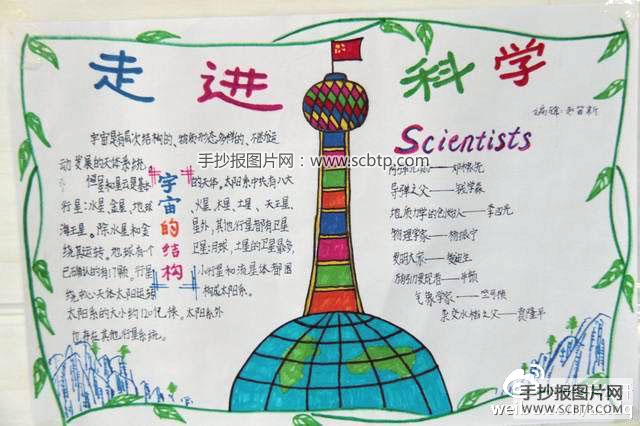 走进科学
宇宙是有层次结构的、物质形态多样的、不断运
动发展的天体系统。
恒星和星云是基本的天体。太阳系中共有八大
行星:水星、金星、地球、火星、木星、土星、天王星、
海王星。除水星和金星外,其他行星都有卫星
绕其运转。地球有个卫星:月球,土星的卫星最多,
已确认的有17颗。行星、小行星和流星体都围
绕中心天体太阳运转构成太阳系。
太阳系的大小约120亿
太阳系外
也存在其他行星系统。
宇宙的结构
手抄报图片网:www.scbtp.com
Scientists
——邓稼先
导弹之父——钱学森
地质力学的创始人——李四光
物理学家——杨振宁
——爱迪生
——牛顿
气象学家——竺可桢
杂交水稻之父——袁隆平
手抄报图片网
WWW.SCBTP.COM